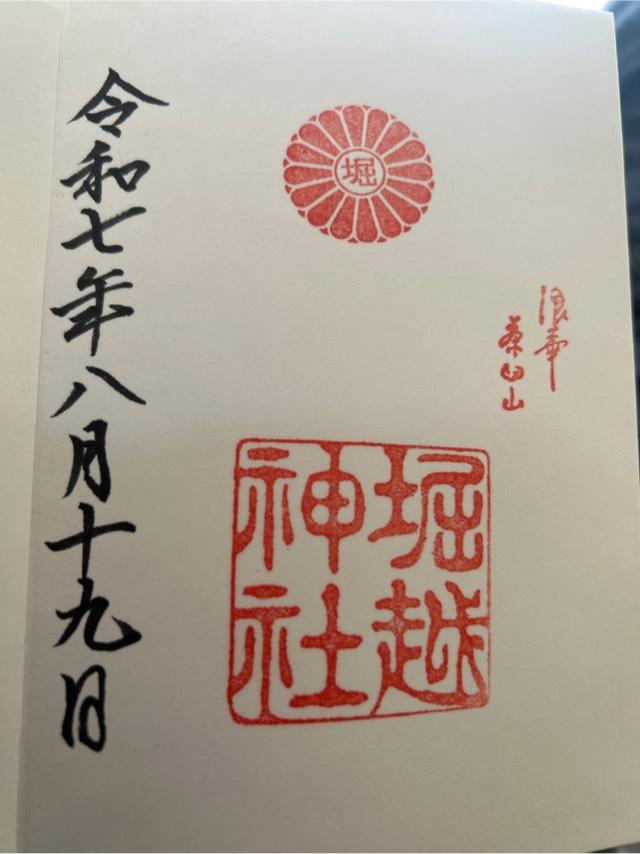 堀
浪華
茶臼山
堀越
神社
令和七年八月十九日